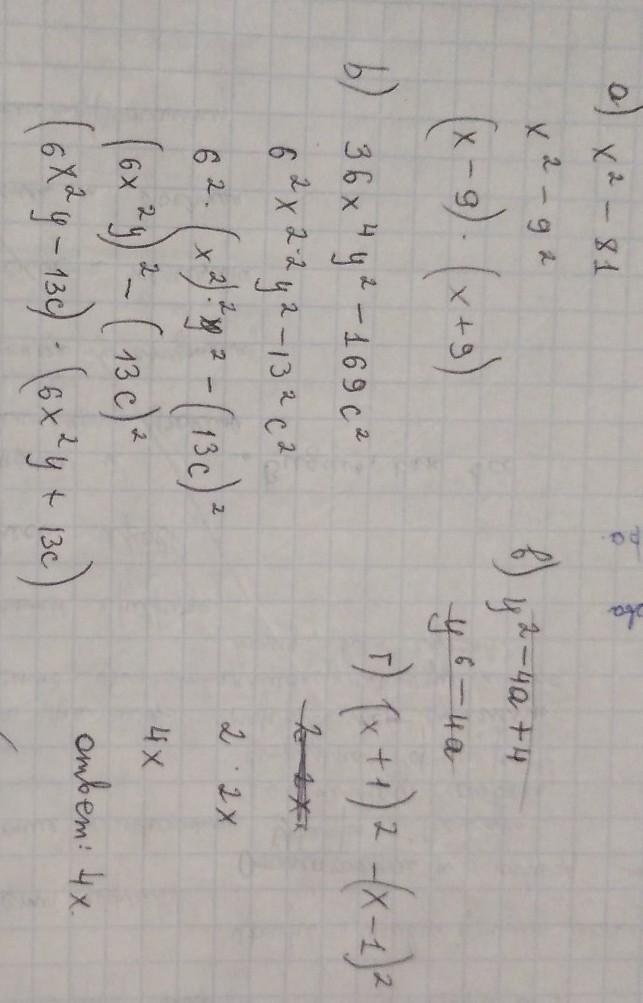 а) x² - 81
x² - 9²
(x - 9) · (x + 9)
б) 36x⁴y² - 169c²
6²x²·²y² - 13²c²
6² · (x²)² · y² - (13c)²
(6x²y)² - (13c)²
(6x²y - 13c) · (6x²y + 13c)
в) y² - 4a + 4
y⁶ - 4a
г) (x + 1)² - (x - 1)²
2 · 2x
4x
ответ: 4x.